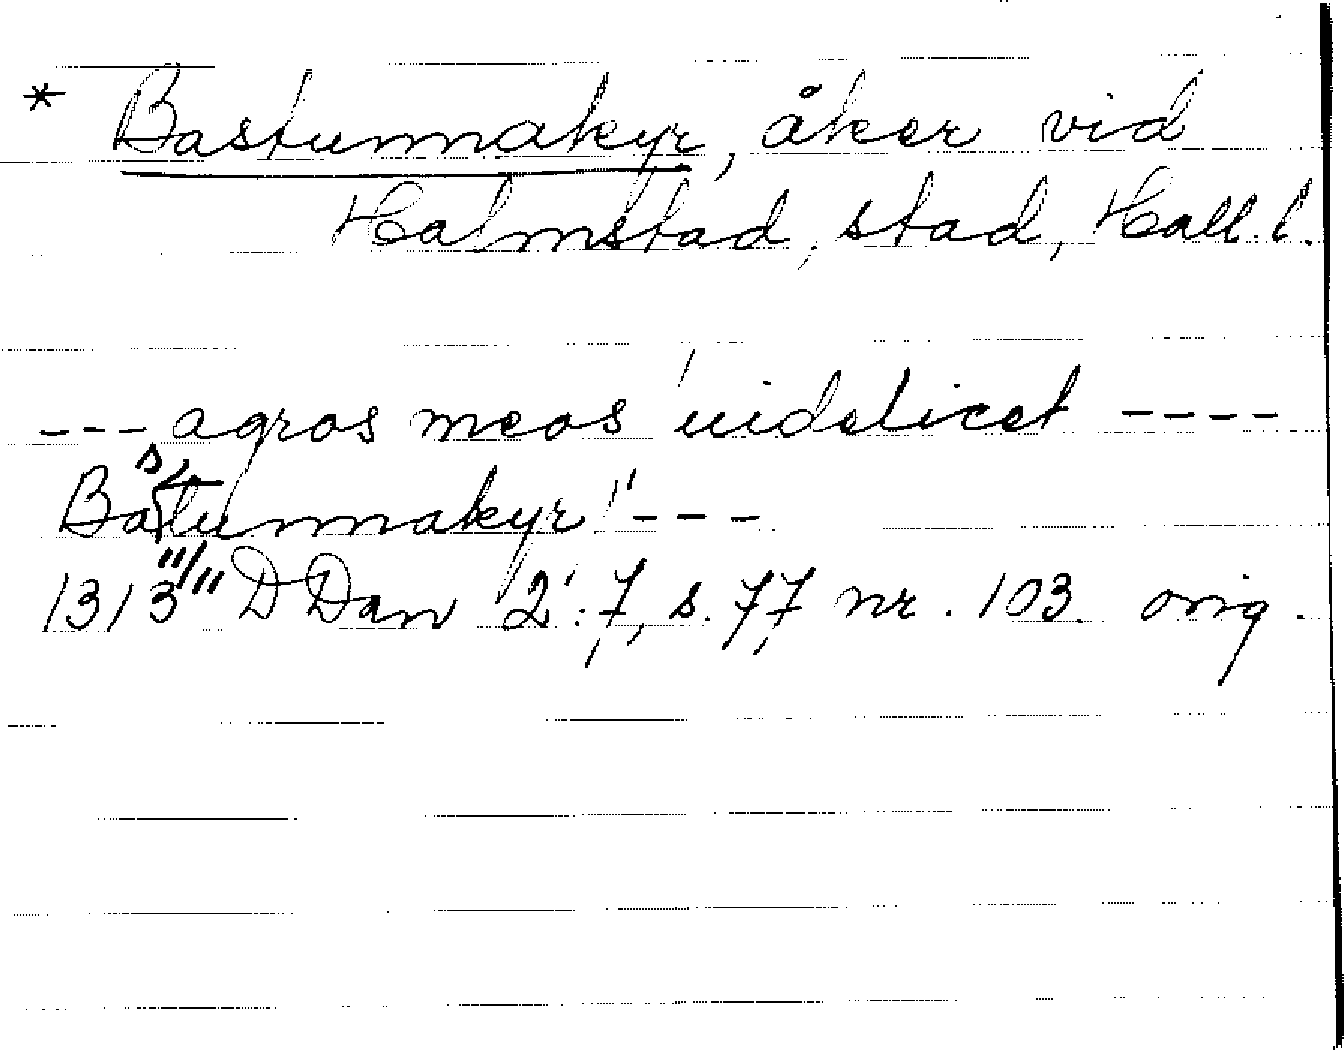 * Bastunnakyr, åker vid
Halmstad, stad, Hall. l.
--- agros meos uidelicet ----
Bastunnakyr ---
1313 11/11 DDan 2:7, s. 77 nr. 103 orig.